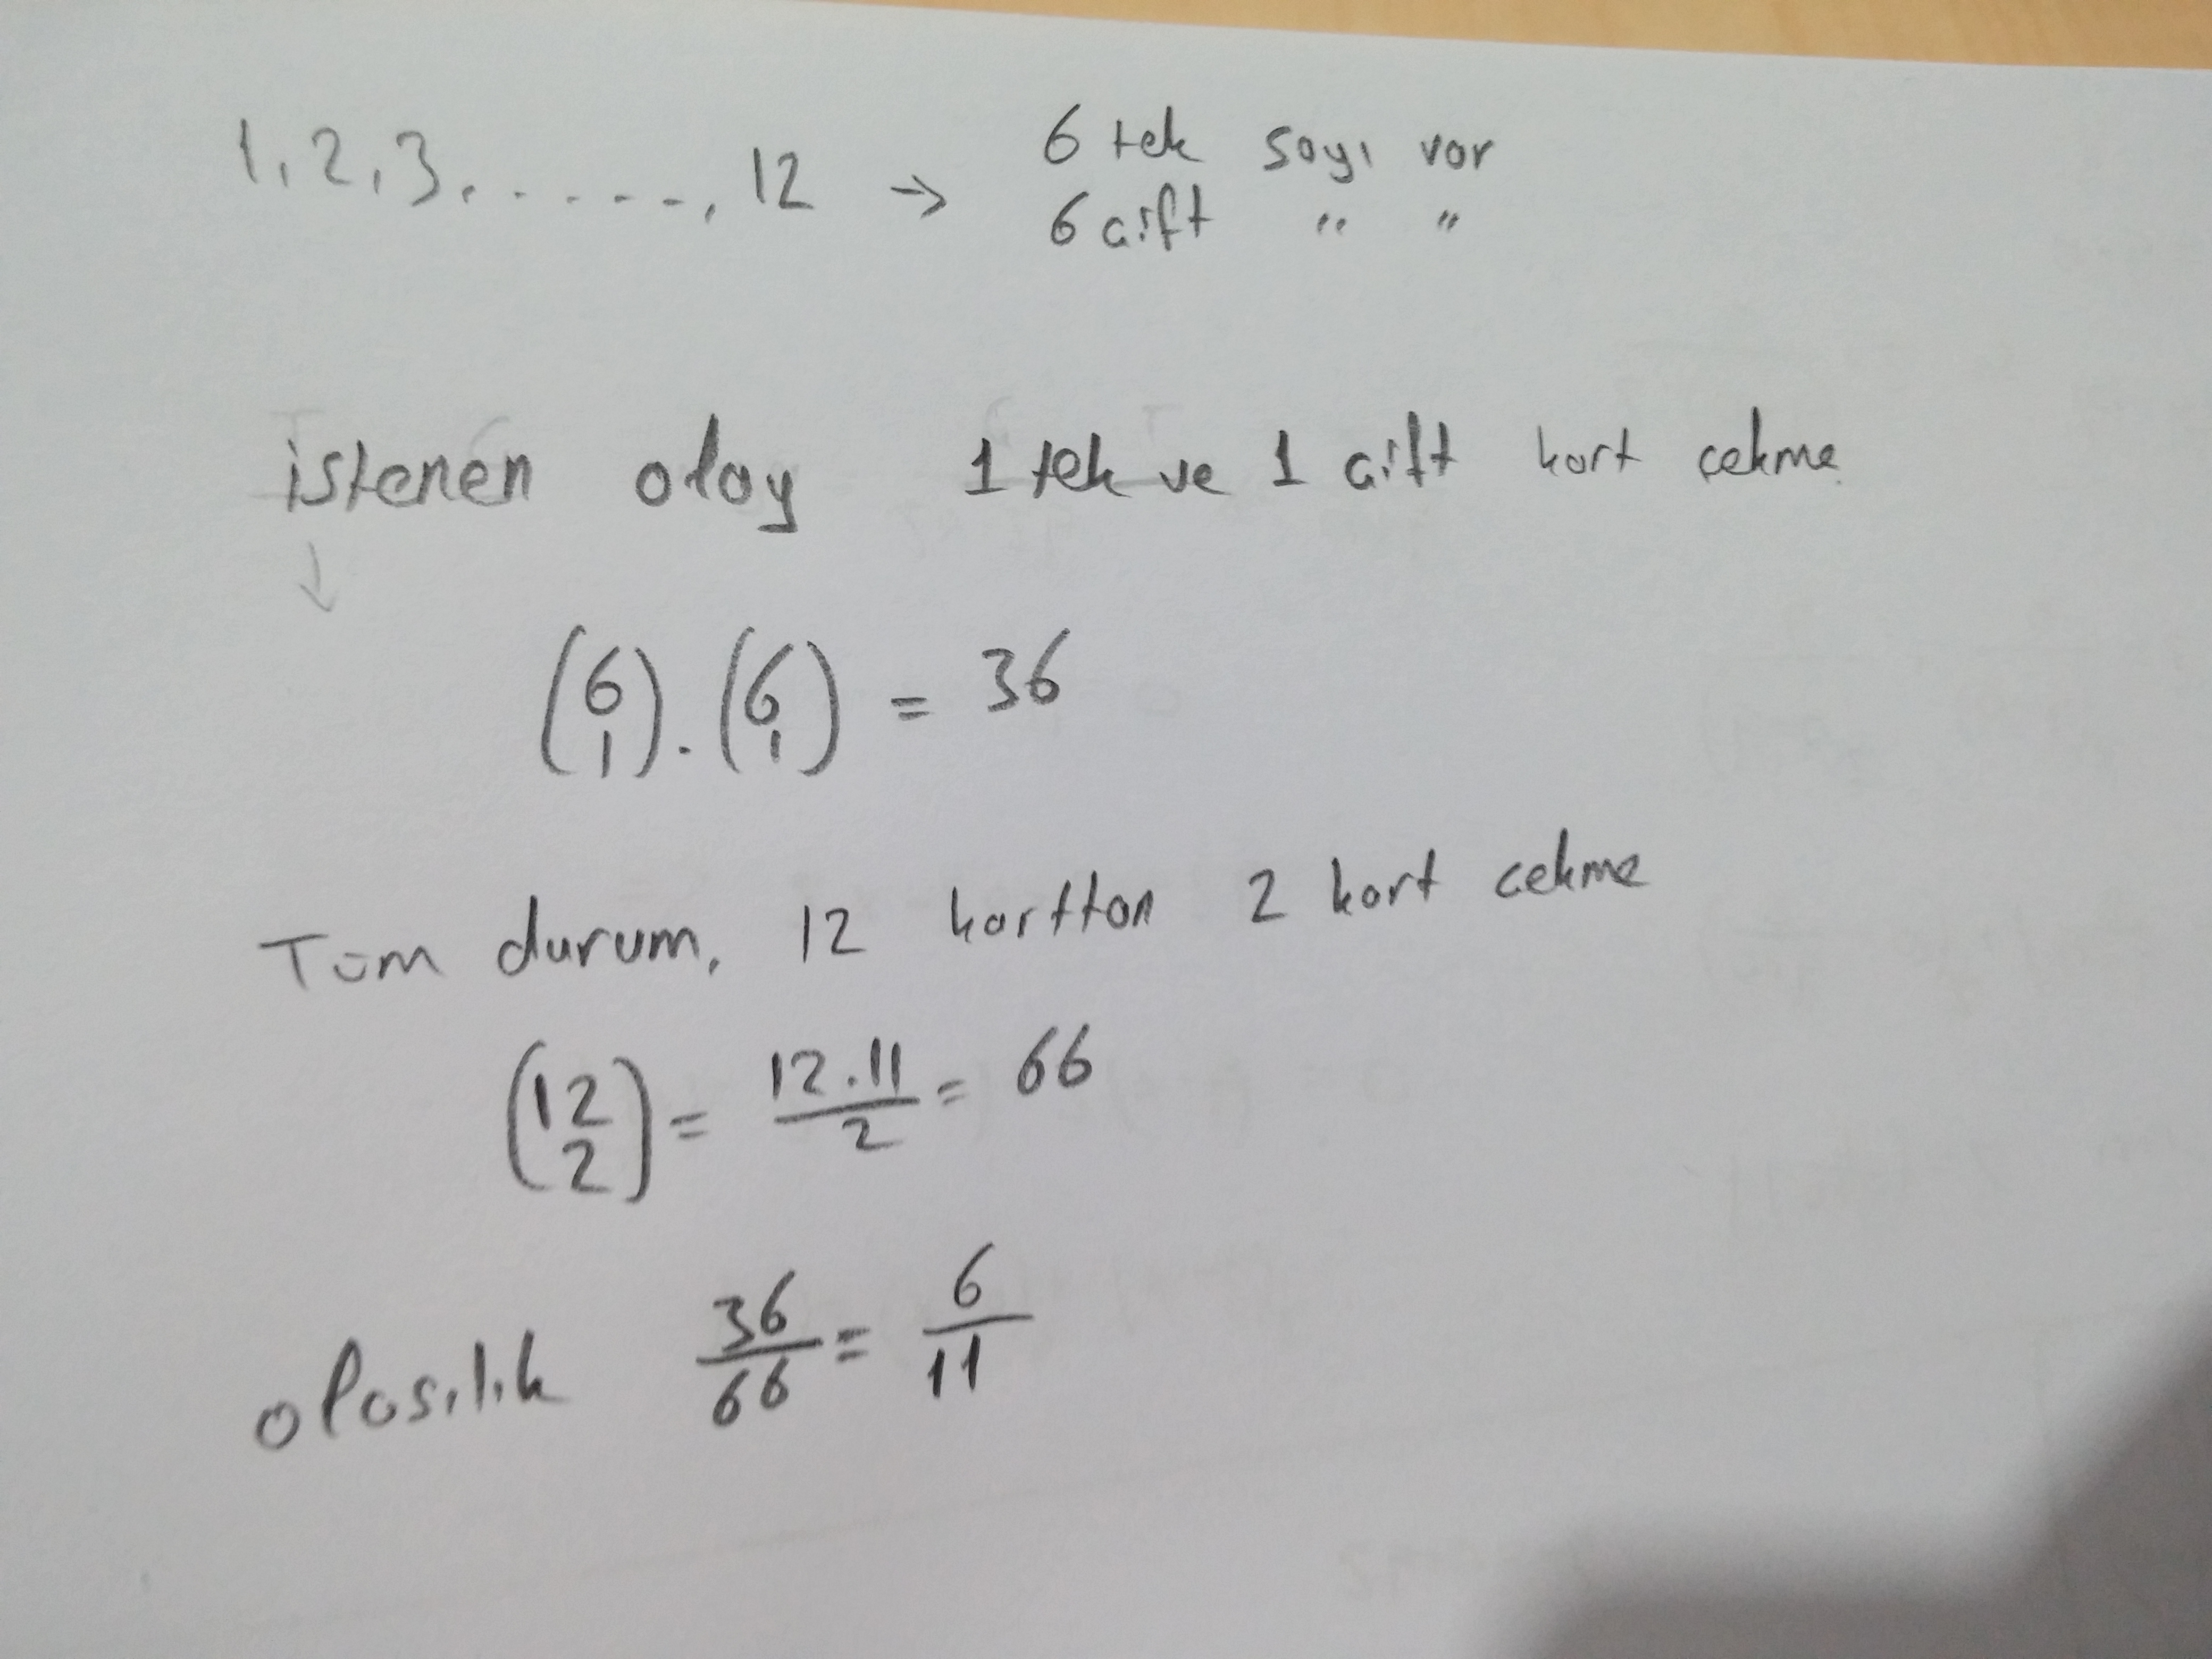 1, 2, 3, . . - - -, 12 → 6 tek sayı var
6 çift " "
istenen olay 1 tek ve 1 çift kart çekme
↓
(6 1) . (6 1) = 36
Tüm durum, 12 karttan 2 kart çekme
(12 2) = 12.11/2 = 66
olasılık 36/66 = 6/11